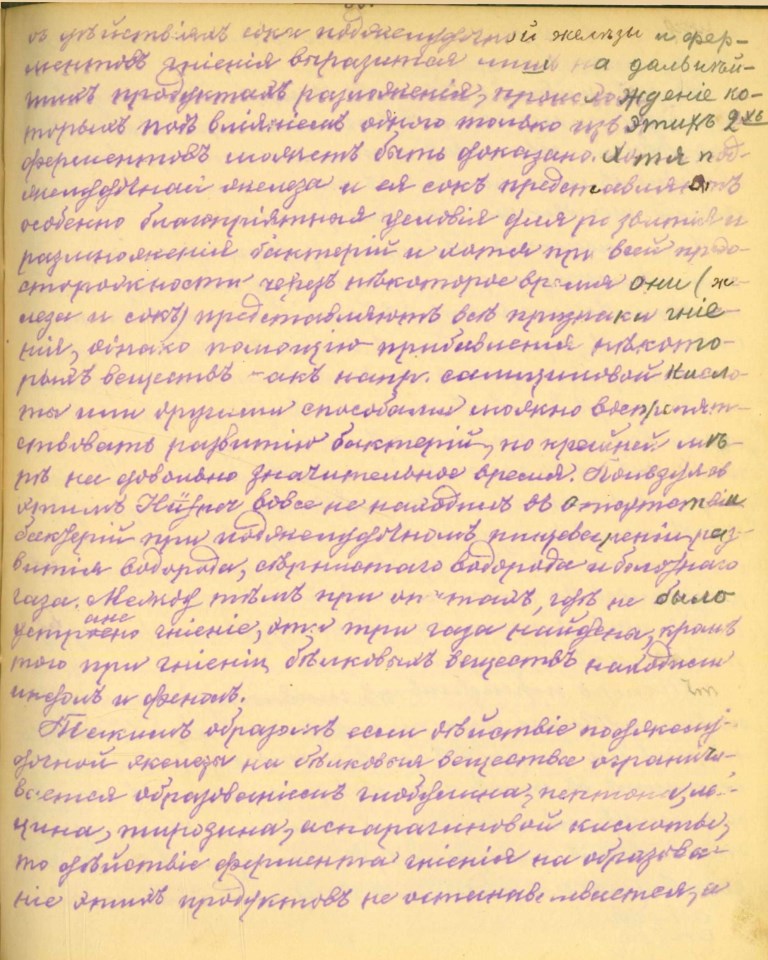 въ дѣйствіяхъ сока поджелудочной железы и фер-
ментовъ гніенія выразится лишь на дальнѣй-
шихъ продуктахъ разложенія, происхожденіе ко-
торыхъ подъ вліяніемъ одного только изъ этихъ 2хъ
ферментовъ можетъ быть доказано. Хотя под-
желудочная железа и ея сокъ представляютъ
особенно благопріятныя условія для развитія и
размноженія бактерій и хотя при всей предо-
сторожности черезъ нѣкоторое время они (же-
леза и сокъ) представляютъ всѣ признаки гніе-
нія, однако помощію прибавленія нѣкото-
рыхъ веществъ какъ напр. салициловой кисло-
ты или другими способами можно воспрепят-
ствовать развитію бактерій, по крайней мѣ-
рѣ на довольно значительное время. Пользуясь
этимъ Hüfner вовсе не находилъ въ отсутствіи
бактерій при поджелудочномъ пищевареніи раз-
витія водорода, сѣрнистаго водорода и болотнаго
газа. Между тѣмъ при опытахъ, гдѣ не было
устранено гніеніе, эти три газа найдены, кромѣ
того при гніеніи бѣлковыхъ веществъ находили
индолъ и фенолъ.
Такимъ образомъ если дѣйствіе поджелу-
дочной железы на бѣлковыя вещества ограничи-
вается образованіемъ глобулина, пептона, лей-
цина, тирозина, аспарагиновой кислоты,
то дѣйствіе фермента гніенія на образова-
ніе этихъ продуктовъ не останавливается, а